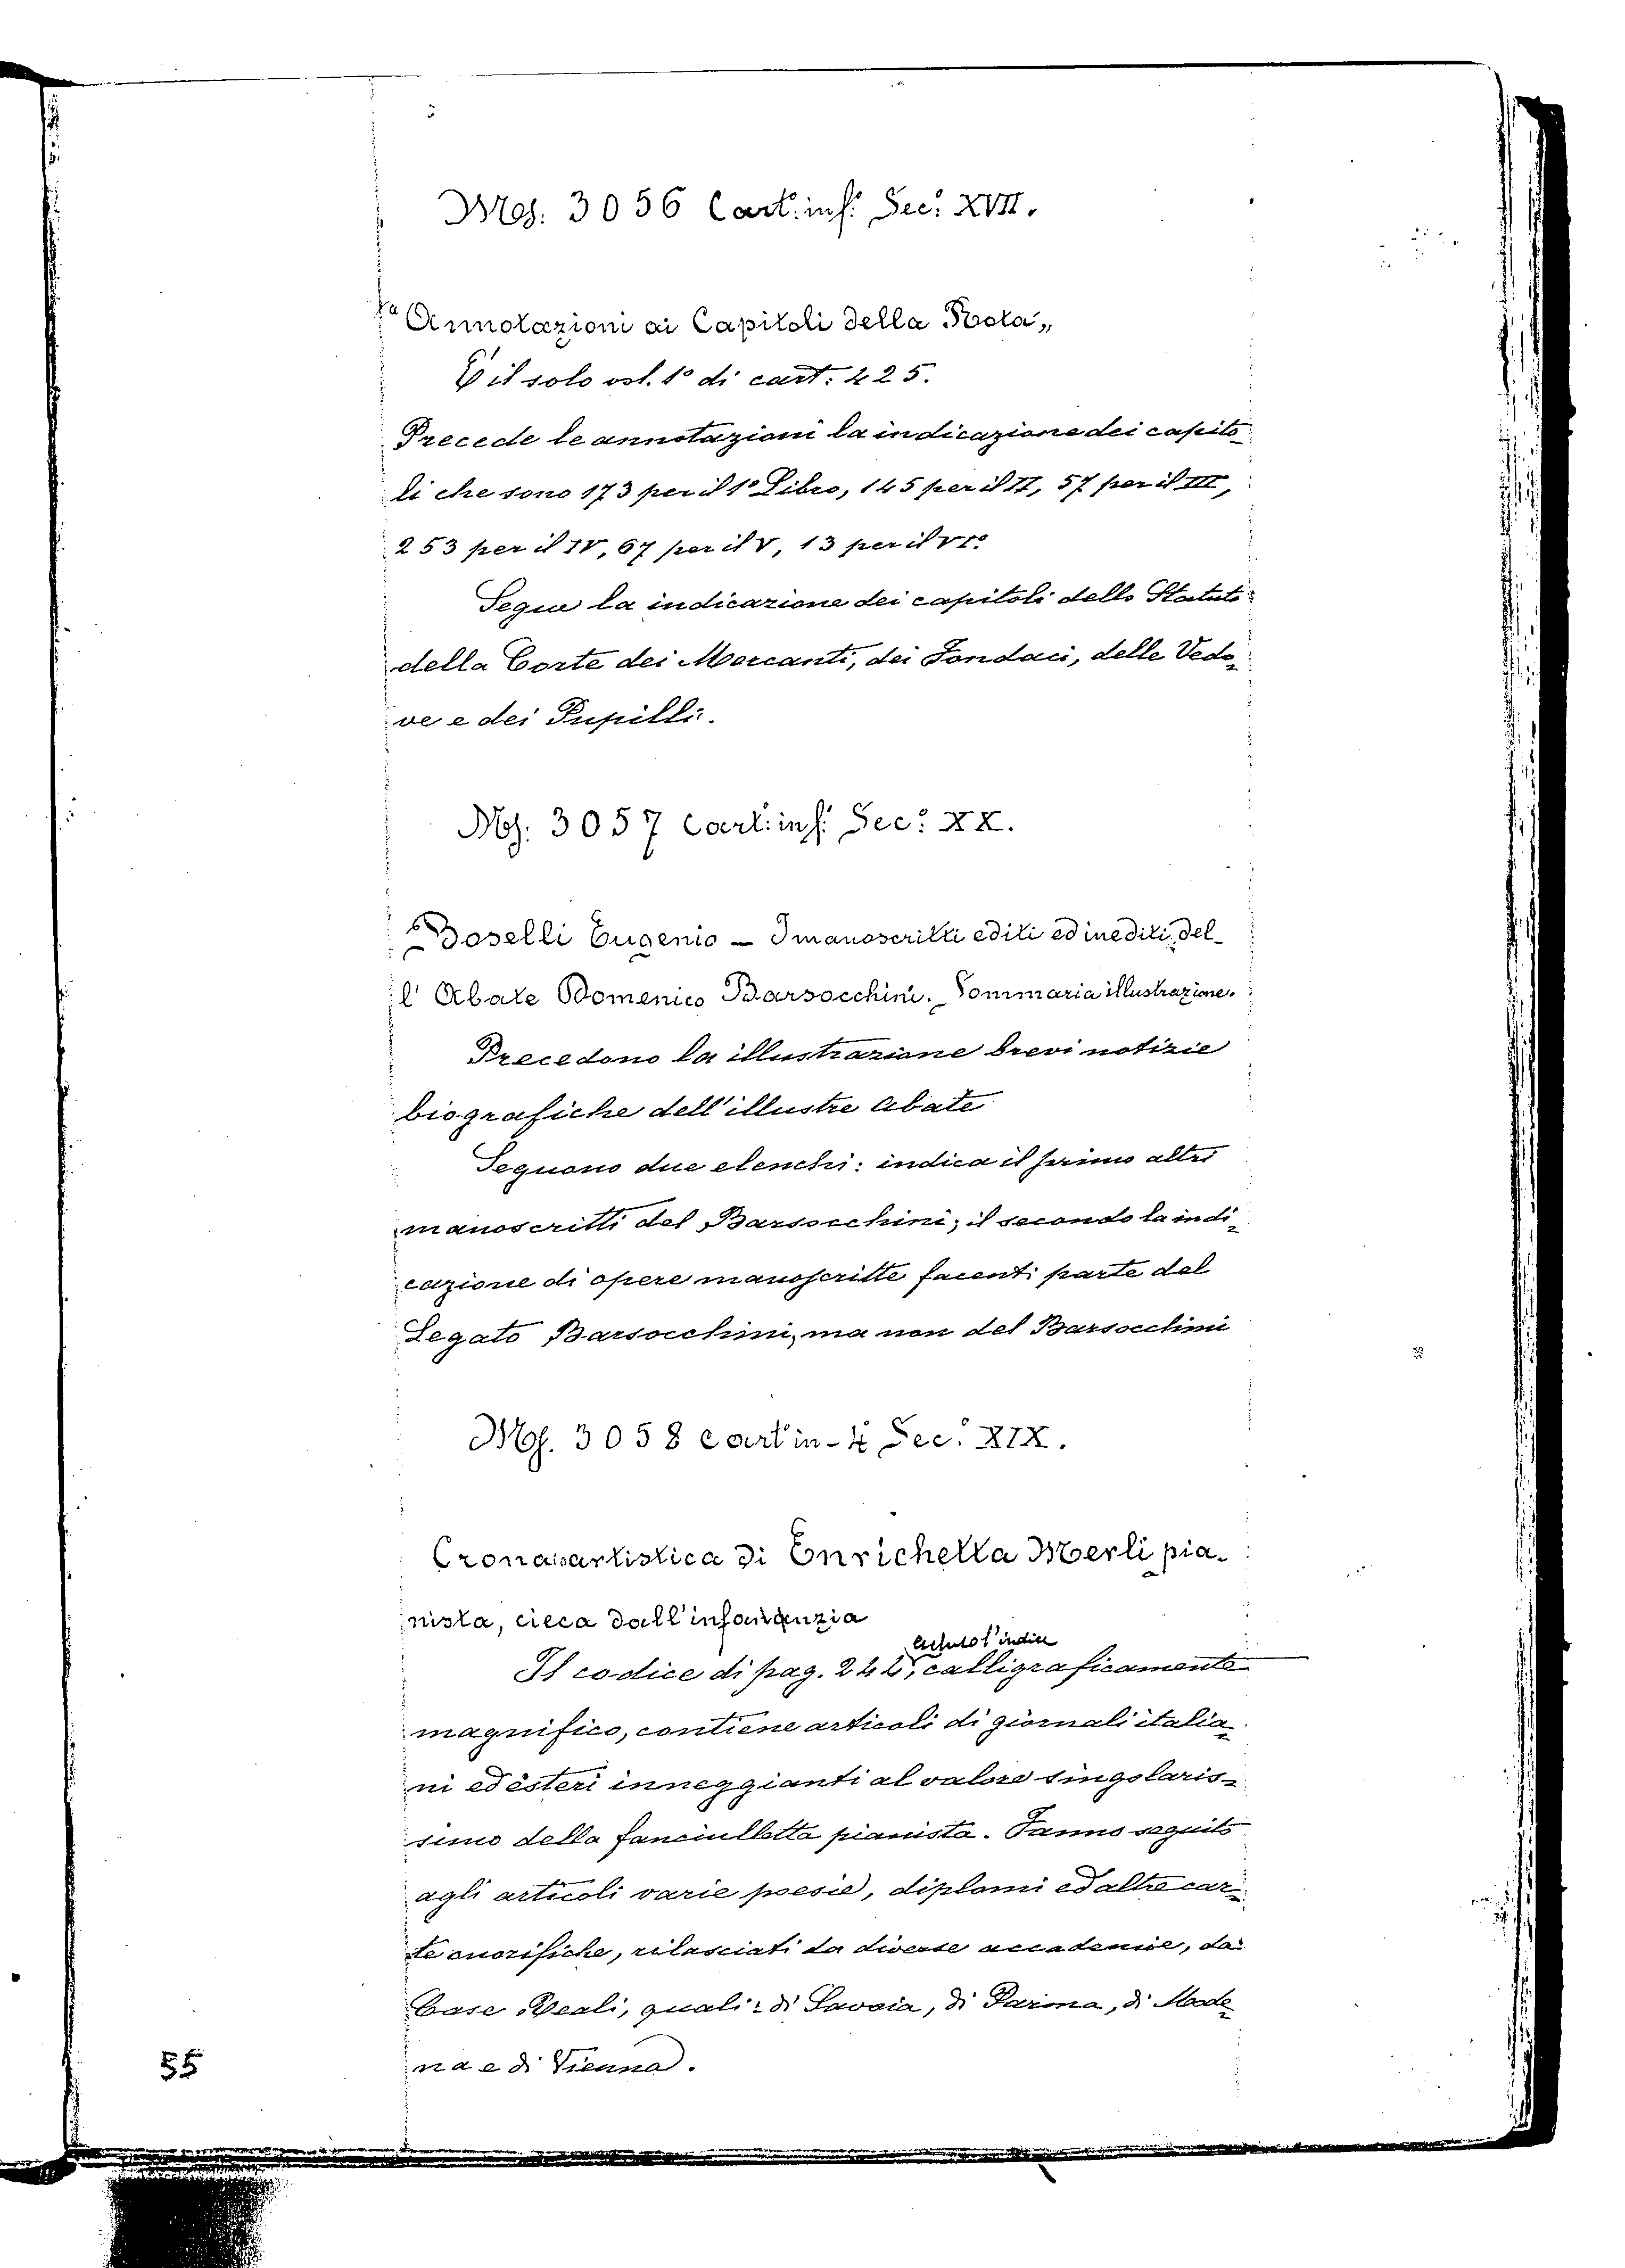 Ms. 3056 Cart. in f. Sec. XVII.
"Annotazioni ai Capitoli della Rota„
È il solo vol. 1° di cart. 425.
Precede le annotazioni la indicazione dei capito-
li che sono 173 per il 1° Libro, 145 per il II, 57 per il III,
253 per il IV, 67 per il V, 13 per il VI°
Segue la indicazione dei capitoli dello Statuto
della Corte dei Mercanti, dei Fondaci, delle Vedo-
ve e dei Pupilli.
Ms. 3057 Cart. in f. Sec. XX.
Boselli Eugenio – I manoscritti editi ed inediti del-
l'Abate Domenico Barsocchini. – Sommaria illustrazione.
Precedono la illustrazione brevi notizie
biografiche dell'illustre Abate
Seguono due elenchi: indica il primo altri
manoscritti del Barsocchini; il secondo la indi-
cazione di opere manoscritte facenti parte del
Legato Barsocchini, ma non del Barsocchini
Ms. 3058 cart in-4 Sec. XIX.
Cronaca artistica di Enrichetta Merli pia-
nista, cieca dall'infanzia
escluso l'indice
Il codice di pag. 242, calligraficamente
magnifico, contiene articoli di giornali italia-
ni ed esteri inneggianti al valore singolaris-
simo della fanciulletta pianista. Fanno seguito
agli articoli varie poesie, diplomi ed altre car-
te onorifiche, rilasciati da diverse accademie, da
Case Reali, quali: di Savoia, di Parma, di Mode-
na e di Vienna.
55